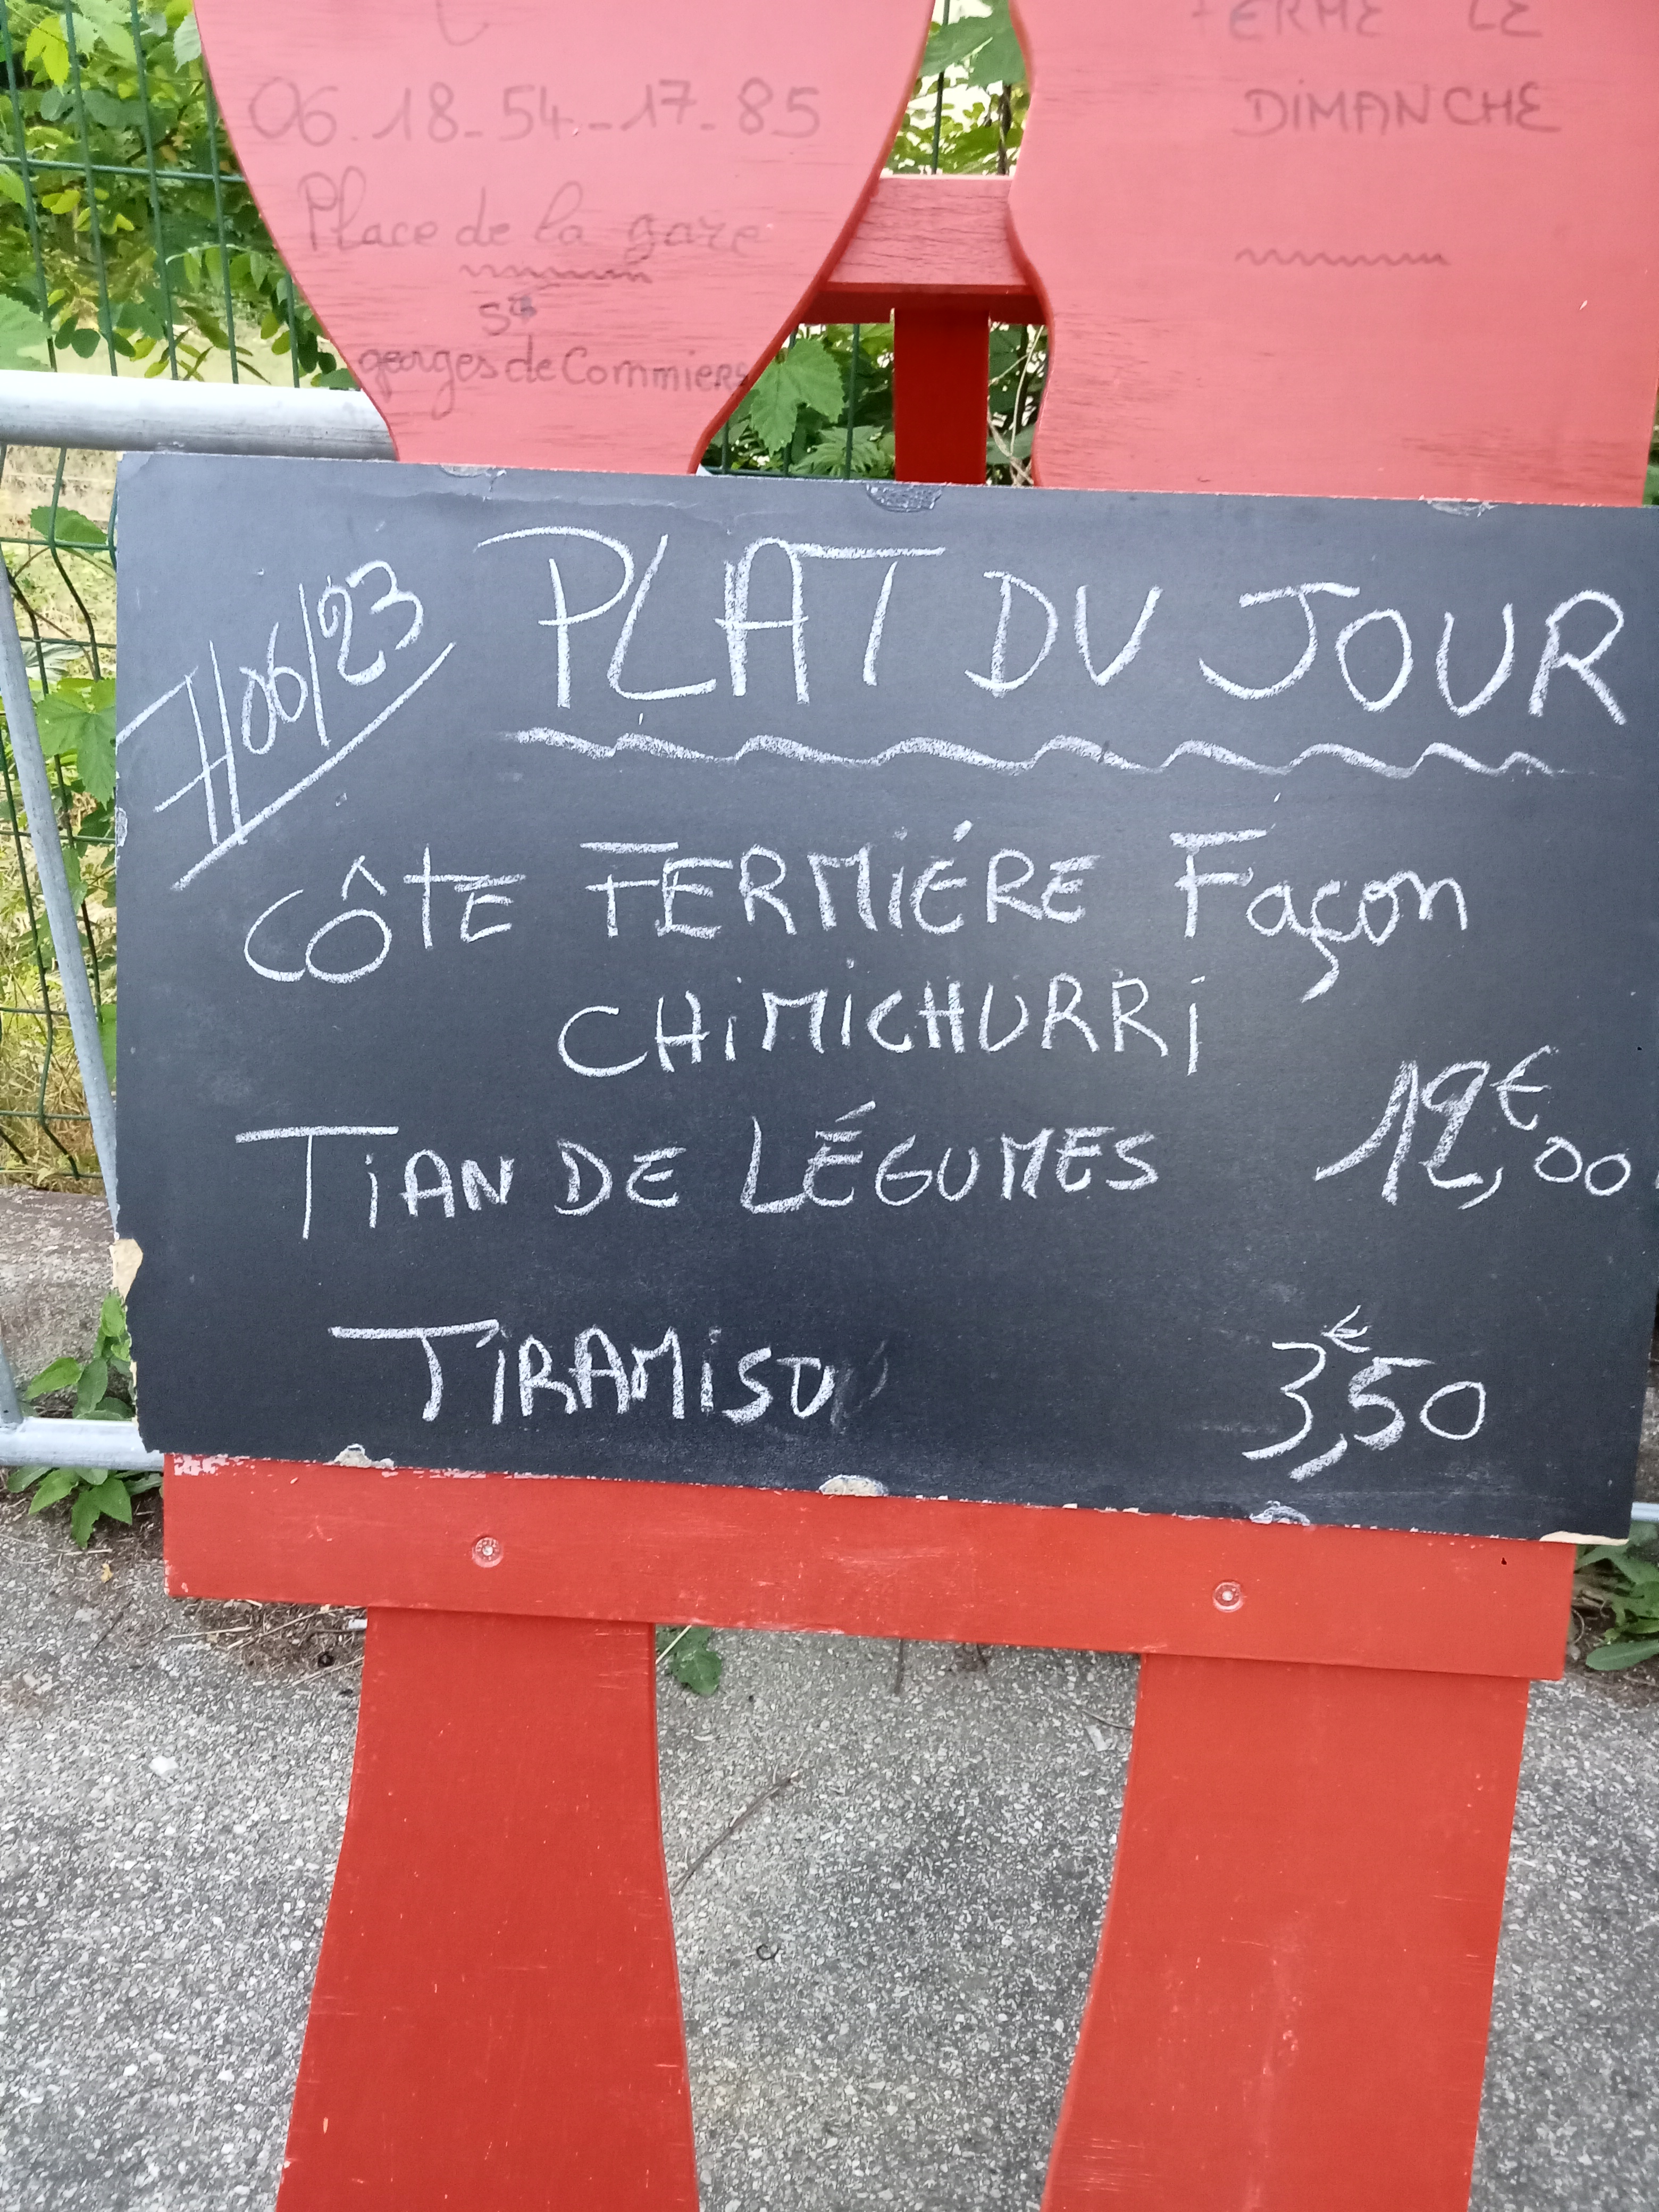 06.18-54-17-85
Place de la gare
St
georges de Commiers
FERME LE
DIMANCHE
7/06/23
PLAT DU JOUR
CÔTE FERMIÉRE Façon
CHIMICHURRI
TIAN DE LÉGUMES 12€,00
TIRAMISU 3€,50